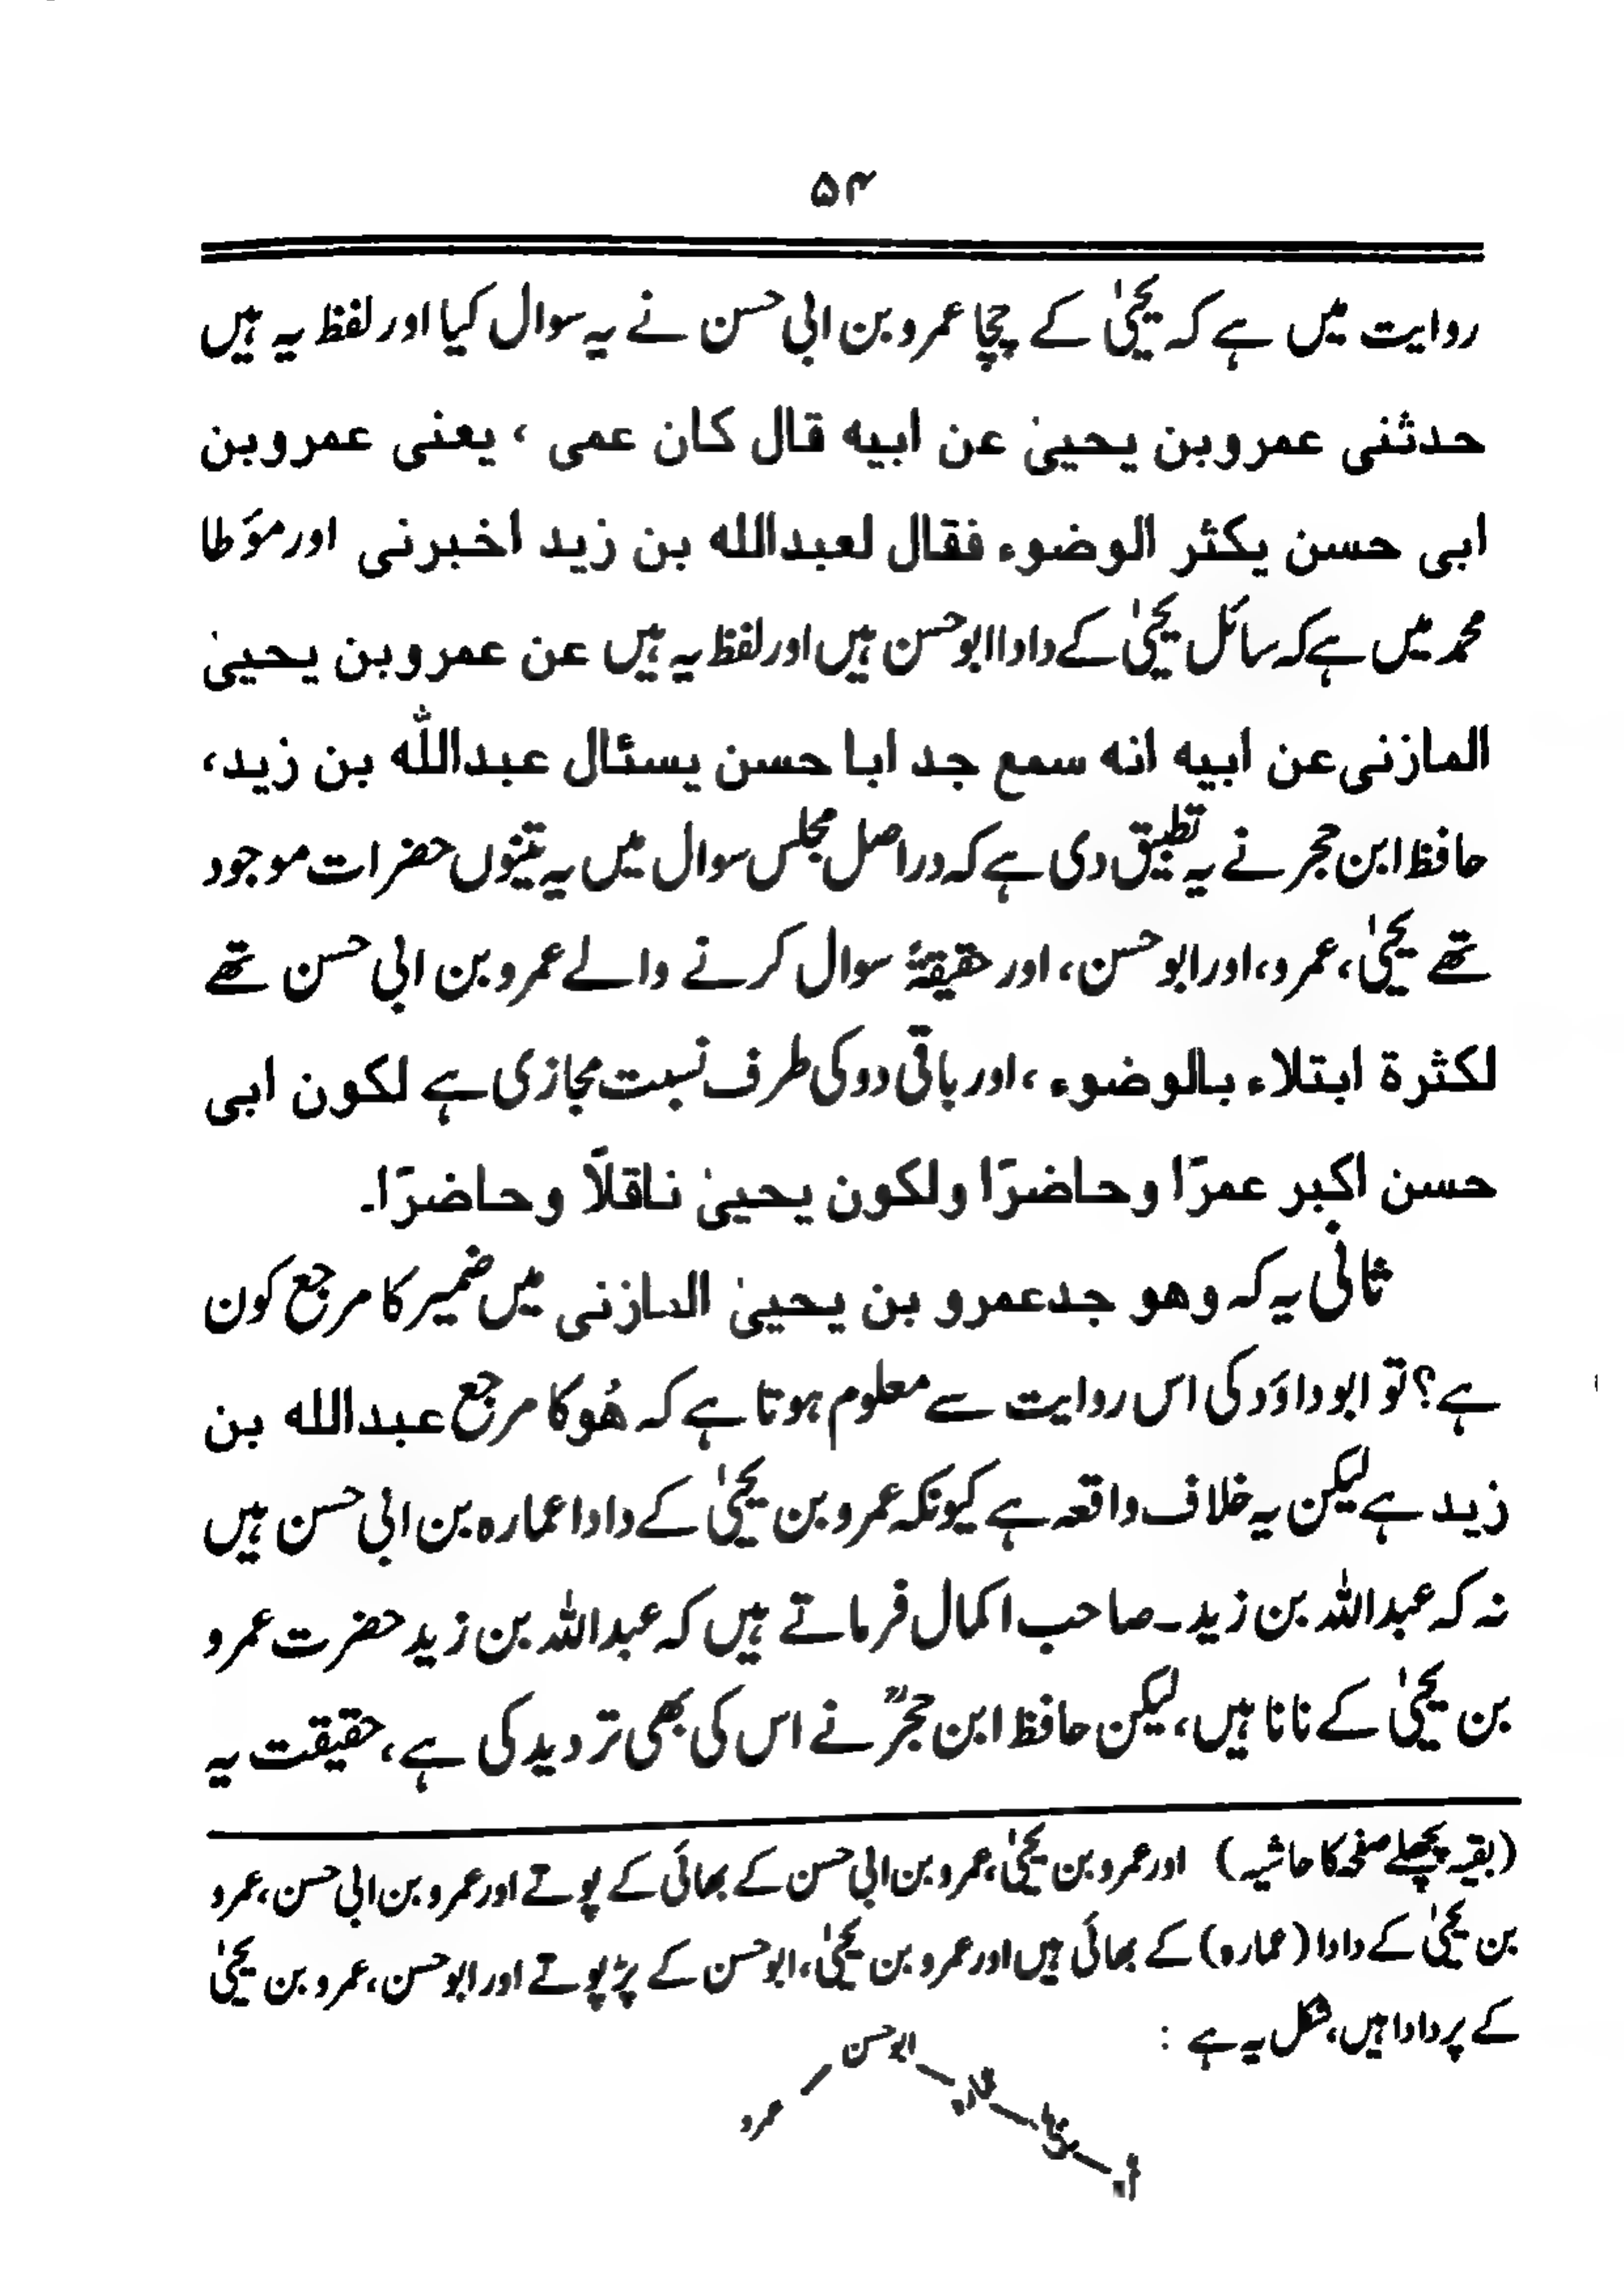 ۵۴
روایت میں ہے کہ یحییٰ کے چچا عمرو بن ابی حسن نے یہ سوال کیا اور لفظ یہ ہیں
حدثنی عمروبن یحییٰ عن ابیه قال کان عمی ، یعنی عمروبن
ابی حسن یکثر الوضوء فقال لعبدالله بن زید اخبرنی اور مؤطا
محمد میں ہے کہ سائل یحییٰ کے دادا ابوحسن ہیں اور لفظ یہ ہیں عن عمروبن یحییٰ
المازنی عن ابیه انه سمع جد ابا حسن یسئال عبدالله بن زید،
حافظ ابن حجر نے یہ تطبیق دی ہے کہ دراصل مجلس سوال میں یہ تینوں حضرات موجود
تھے یحییٰ، عمرو، اور ابوحسن، اور حقیقۃً سوال کرنے والے عمرو بن ابی حسن تھے
لکثرة ابتلاء بالوضوء ، اور باقی دو کی طرف نسبت مجازی ہے لکون ابی
حسن اکبر عمرًا وحاضرًا ولکون یحییٰ ناقلاً وحاضرًا۔
ثانی یہ کہ وهو جدعمرو بن یحییٰ المازنی میں ضمیر کا مرجع کون
ہے؟ تو ابوداؤد کی اس روایت سے معلوم ہوتا ہے کہ ھُو کا مرجع عبدالله بن
زید ہے لیکن یہ خلاف واقعہ ہے کیونکہ عمرو بن یحییٰ کے دادا عمارہ بن ابی حسن ہیں
نہ کہ عبداللہ بن زید۔ صاحب اکمال فرماتے ہیں کہ عبداللہ بن زید حضرت عمرو
بن یحییٰ کے نانا ہیں، لیکن حافظ ابن حجرؒ نے اس کی بھی تردید کی ہے، حقیقت یہ
(بقیہ پچھلے صفحہ کا حاشیہ) اور عمرو بن یحییٰ، عمرو بن ابی حسن کے بھائی کے پوتے اور عمرو بن ابی حسن، عمرو
بن یحییٰ کے دادا (عمارہ) کے بھائی ہیں اور عمرو بن یحییٰ، ابوحسن کے پڑپوتے اور ابوحسن، عمرو بن یحییٰ
کے پردادا ہیں، شکل یہ ہے :
ابوحسن
عمرو